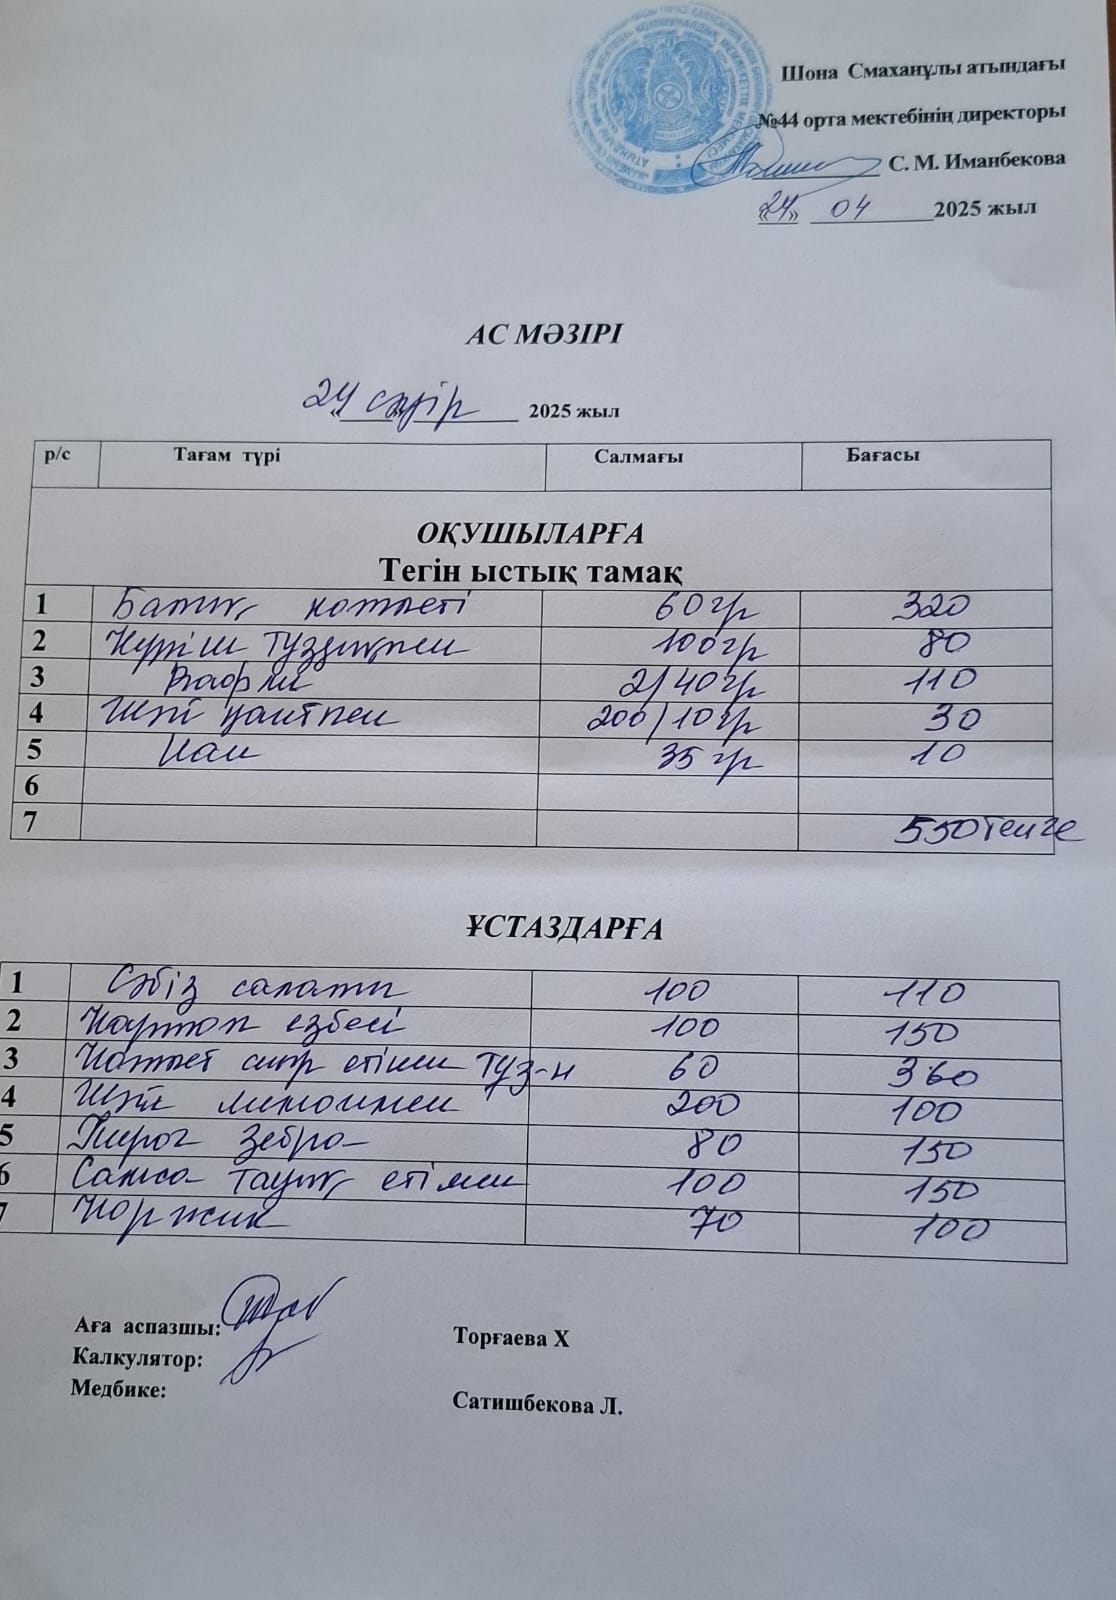 Шона Смаханұлы атындағы
№44 орта мектебінің директоры
С. М. Иманбекова
«24» 04 2025 жыл
АС МӘЗІРІ
«24» сәуір 2025 жыл
р/с Тағам түрі Салмағы Бағасы
ОҚУШЫЛАРҒА
Тегін ыстық тамақ
1 Балық котлеті 60гр 320
2 Күріш тұздықпен 100гр 80
3 Вафли 2/40гр 110
4 Шәй қантпен 200/10гр 30
5 Нан 35 гр 10
6
7 550 тенге
ҰСТАЗДАРҒА
1 Сәбіз салаты 100 110
2 Картоп езбесі 100 150
3 Котлет сиыр етінен тұз-н 60 360
4 Шәй лимонмен 200 100
5 Пирог Зебра 80 150
6 Самса тауық етімен 100 150
7 Коржик 70 100
Аға аспазшы: Торғаева Х
Калкулятор:
Медбике: Сатишбекова Л.